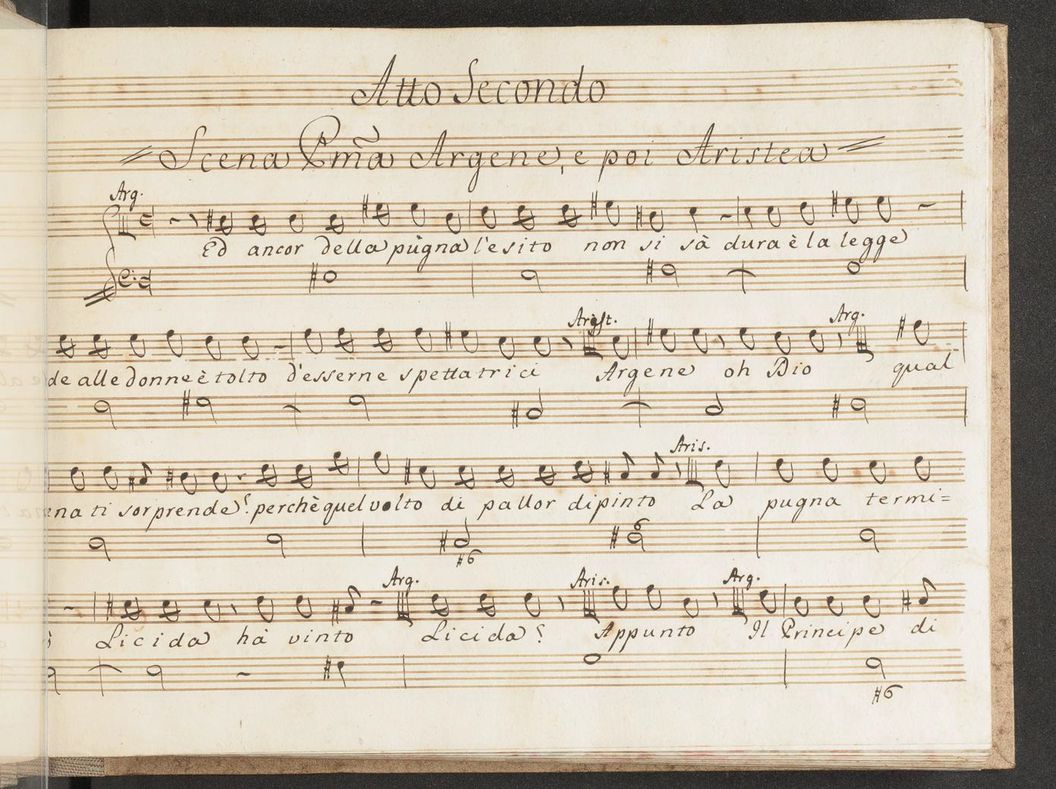 Atto Secondo
Scena Pm̃a Argene, e poi Aristea
Arg.
Ed ancor della pùgna l'esito non si sà dura è la legge
Arist. Arg.
de alle donne è tolto d'esserne spettatrici Argene oh Dio qual
Aris.
na ti sorprende? perchè quel volto di pallor dipinto La pugna termi=
#6 8
Arg. Aris. Arg.
Licida hà vinto Licida? Appunto Il Principe di
#6